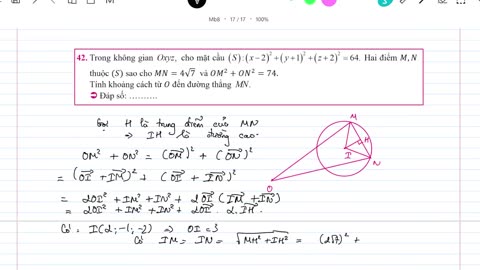 Mb8 • 17 / 17 • 100%
42. Trong không gian Oxyz, cho mặt cầu (S):(x−2)²+(y+1)²+(z+2)²=64. Hai điểm M,N
thuộc (S) sao cho MN=4√7 và OM²+ON²=74.
Tính khoảng cách từ O đến đường thẳng MN.
➲ Đáp số: ..........
Gọi H là trung điểm của MN
⇒ IH là đường cao.
OM² + ON² = (OM⃗)² + (ON⃗)²
= (OI⃗ + IM⃗)² + (OI⃗ + IN⃗)²
= 2OI² + IM² + IN² + 2OI⃗ (IM⃗ + IN⃗)
= 2OI² + IM² + IN² + 2OI⃗ . 2.IH⃗.
Có: I(2;−1;−2) ⇒ OI = 3
Có IM = IN = √MH² + IH² = (2√7)² +
M
H
I
N
O